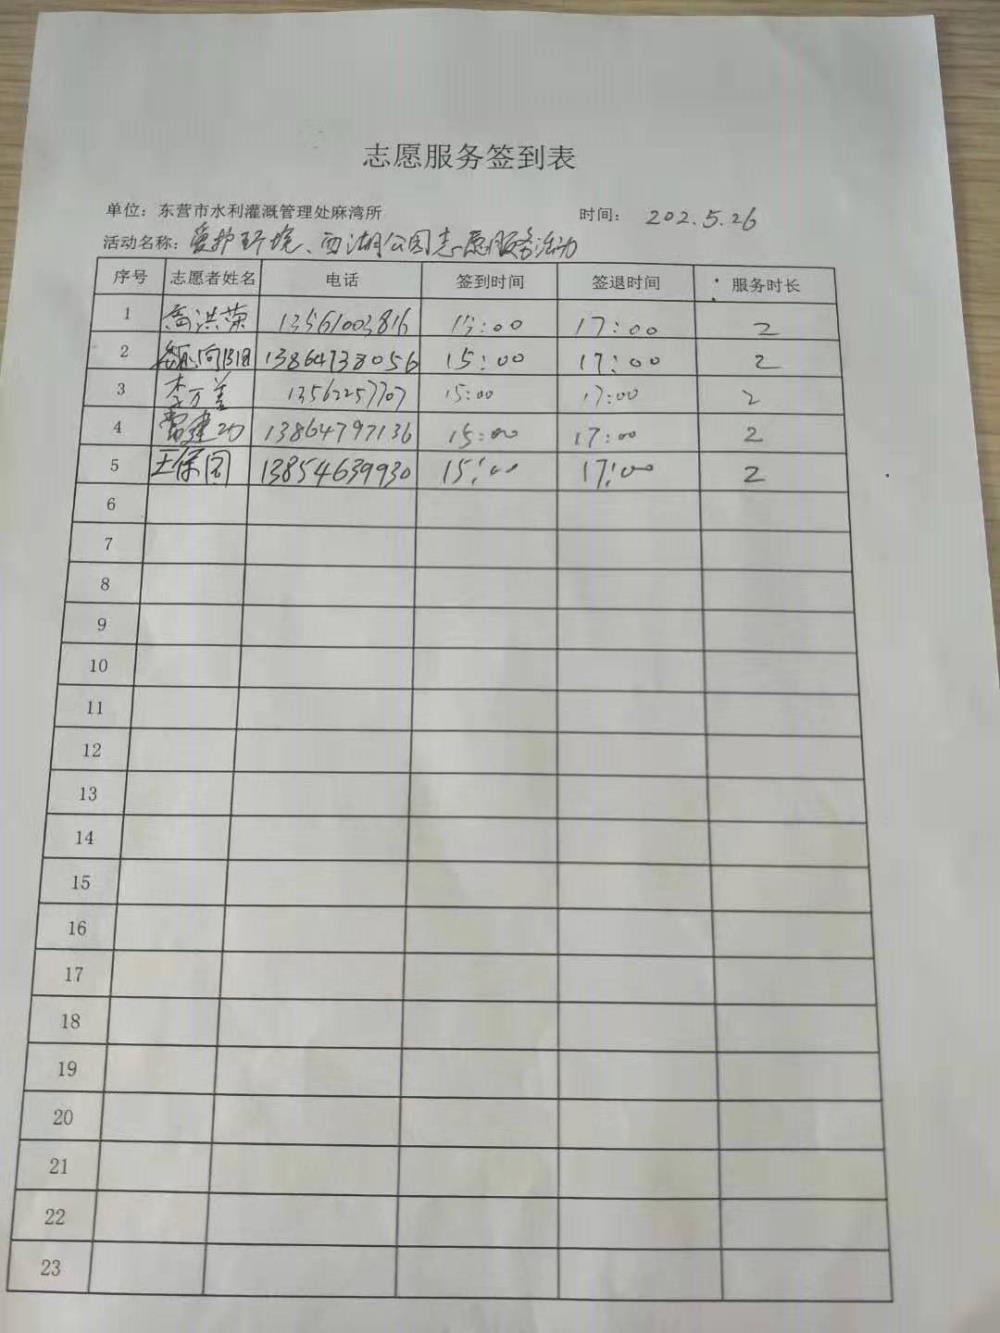 志愿服务签到表
单位：东营市水利灌溉管理处麻湾所 时间： 202.5.26
活动名称：爱护环境、西湖公园志愿服务活动
序号 志愿者姓名 电话 签到时间 签退时间 服务时长
1 高洪荣 13561003816 15:00 17:00 2
2 13864738056 15:00 17:00 2
3 李万善 13562257707 15:00 17:00 2
4 建功 13864797136 15:00 17:00 2
5 王保国 13854639930 15:00 17:00 2
6
7
8
9
10
11
12
13
14
15
16
17
18
19
20
21
22
23